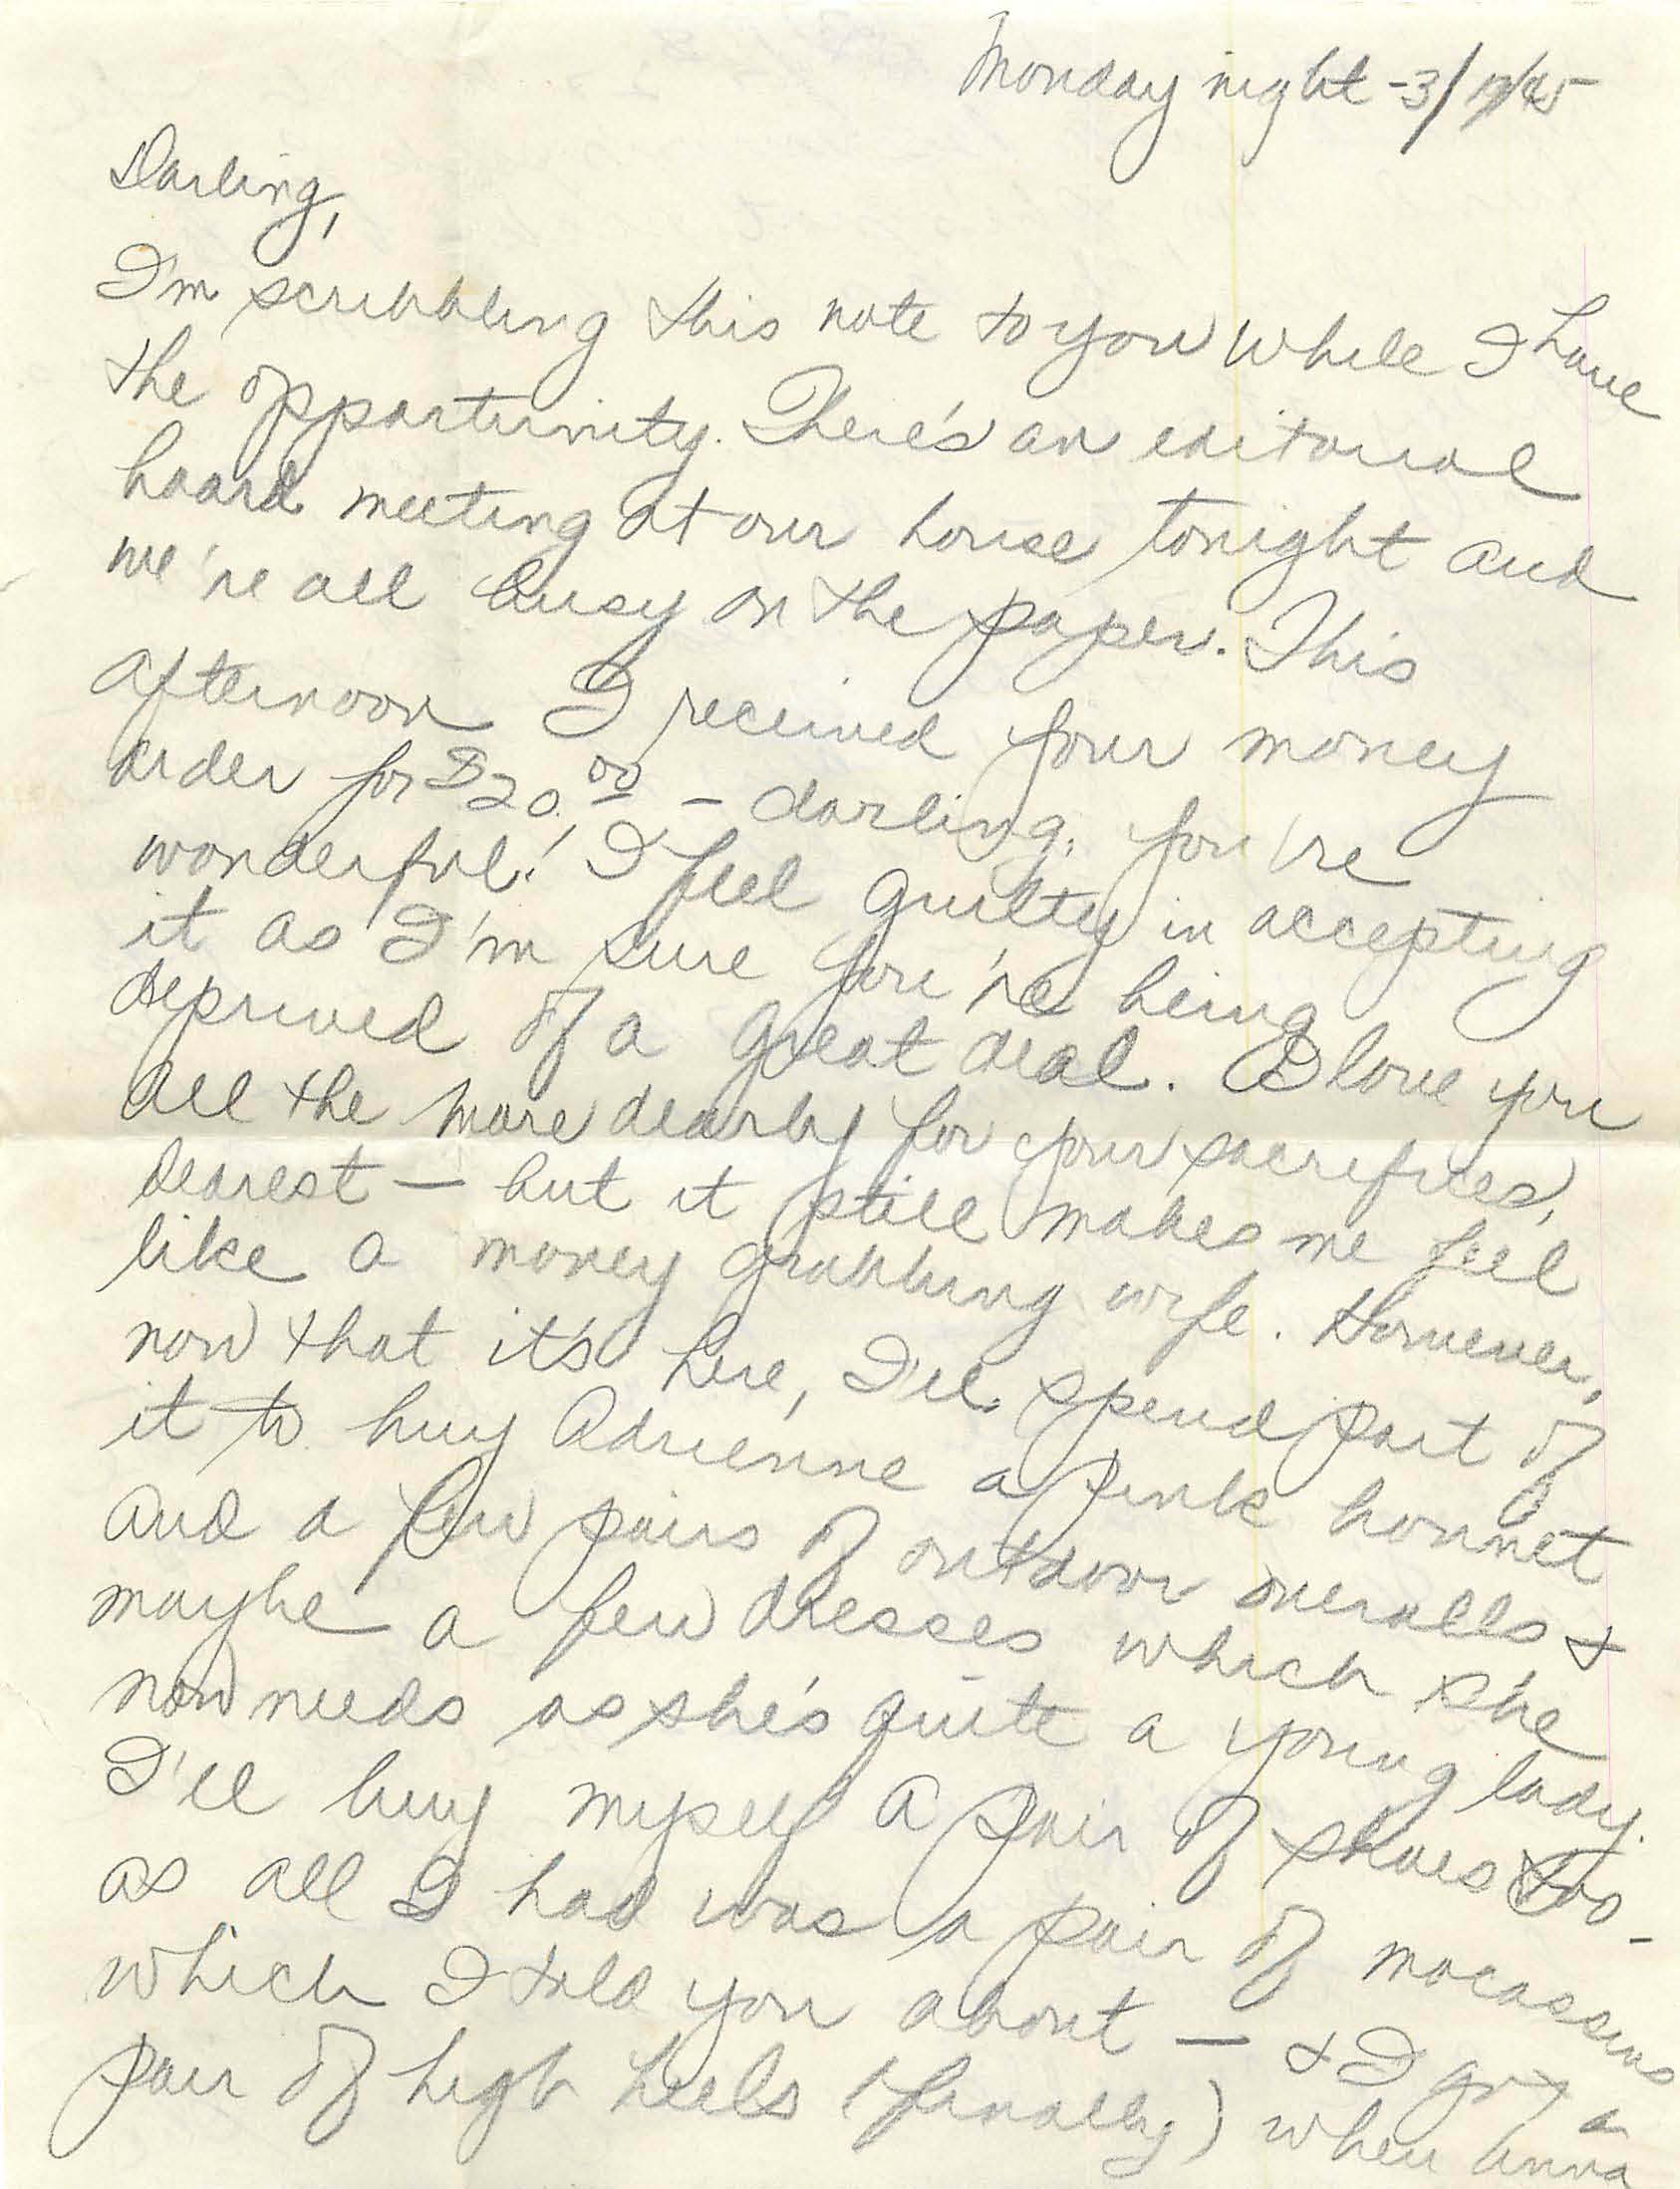 Monday night - 3/19/45
Darling,
I'm scribbling this note to you while I have
the opportunity. There's an editorial
board meeting at our house tonight and
we're all busy on the paper. This
afternoon I received your money
order for $20.00 – darling, you're
wonderful! I feel guilty in accepting
it as I'm sure you're being
deprived of a great deal. I love you
all the more dearly for your sacrifices,
dearest – but it still makes me feel
like a money grubbing wife. However,
now that it's here, I'll spend part of
it to buy Adrienne a pink bonnet
and a few pairs of outdoor overalls &
maybe a few dresses which she
now needs as she's quite a young lady.
I'll buy myself a pair of shoes too -
as all I had was a pair of mocassins
which I told you about – & I got a
pair of high heels (finally) when Anna